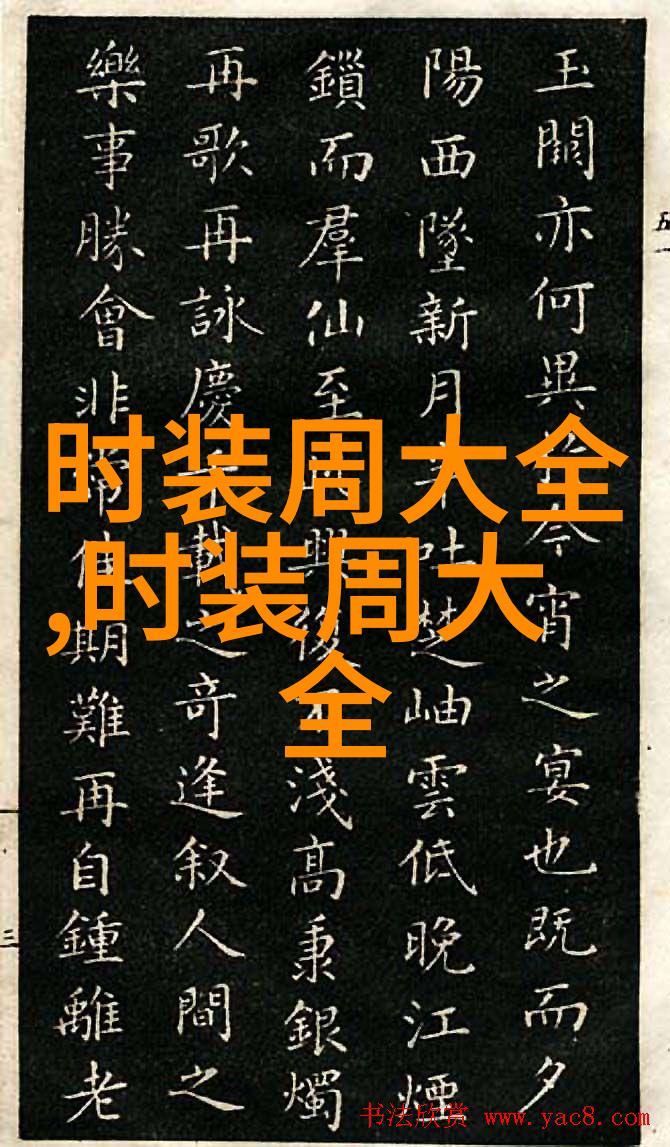 玉闕亦何異今宵之宴也既而夕
陽西墜新月東吐楚岫雲低晚江煙
鎖而羣仙至此興復不淺高秉銀燭
再歌再詠慶千載之奇逢叙人間之
樂事勝會非常佳期難再自鍾離老
时装周大全
,时装周大
全
三
书法欣赏 www.yac8.com